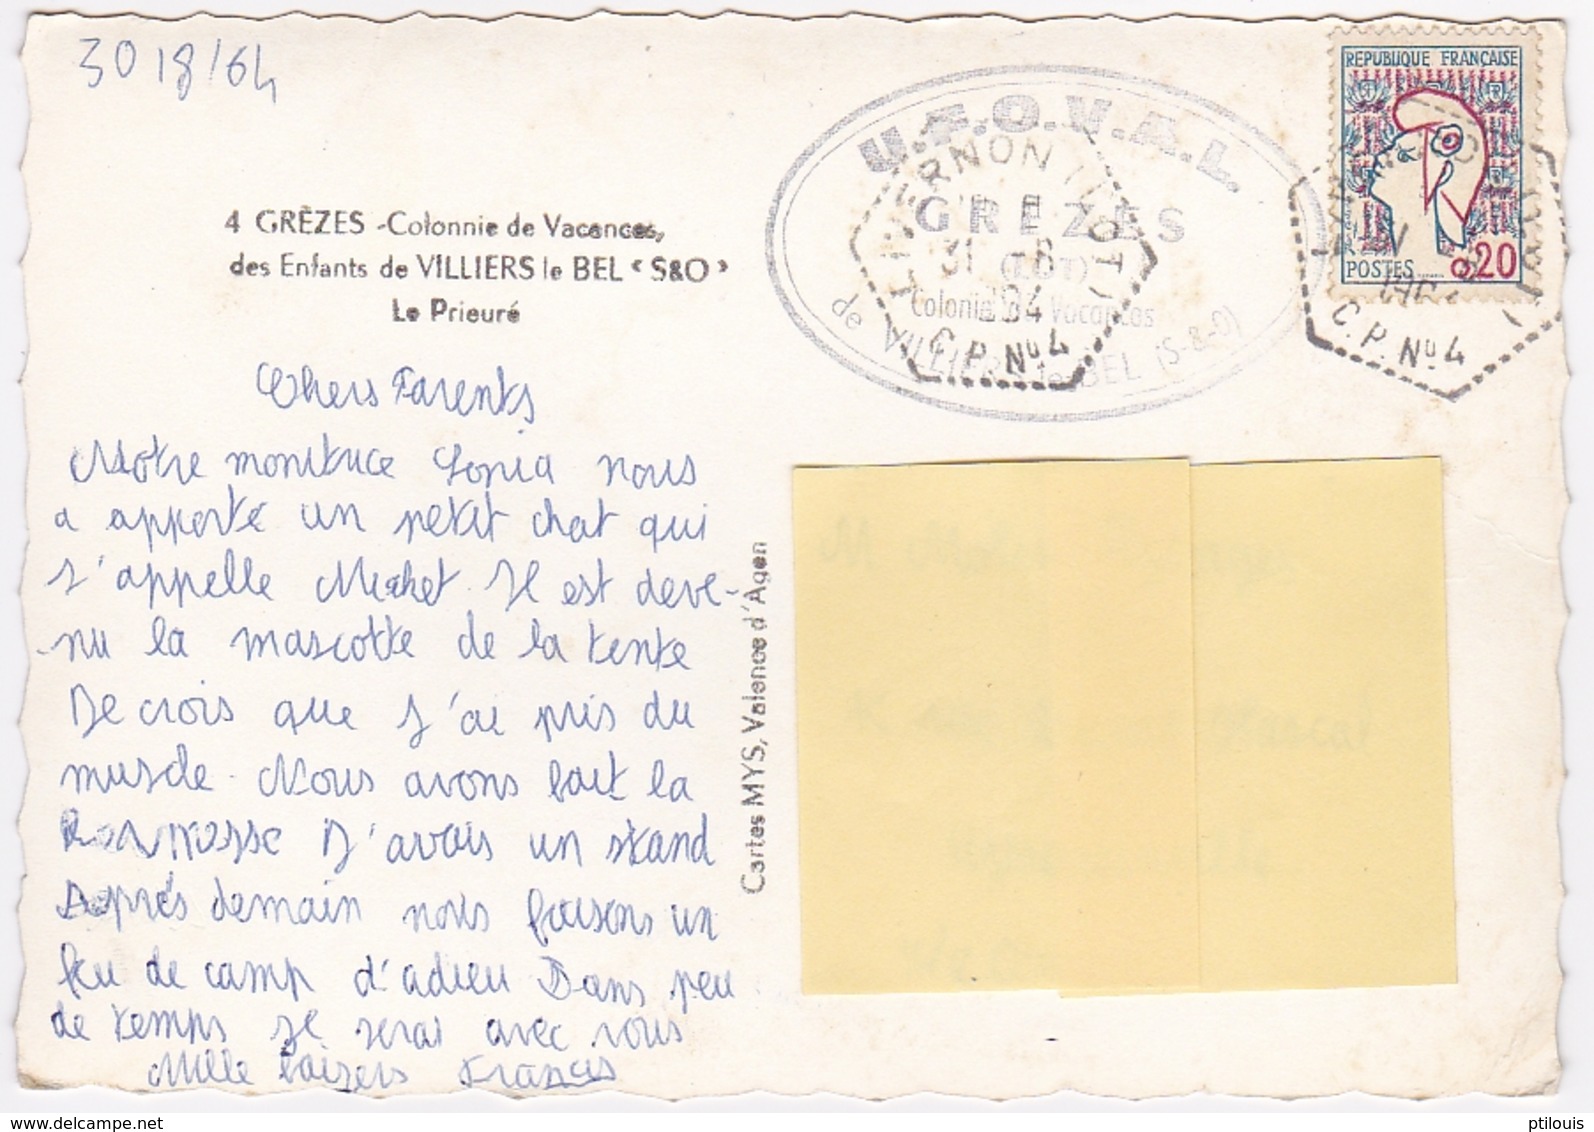 30/8/64
4 GRÈZES -Colonnie de Vacances,
des Enfants de VILLIERS le BEL « S&O »
Le Prieuré
Chers Parents
Notre monitrice Sonia nous
a apporté un petit chat qui
s'appelle Michet. Il est deve-
-nu la mascotte de la tente
Je crois que j'ai pris du
muscle. Nous avons fait la
Kermesse J'avais un stand
Après demain nous faisons un
feu de camp d'adieu Dans peu
de temps je serai avec vous
Mille baizers Francis
Cartes MYS, Valence d'Agen
U.F.O.V.A.L.
GREZES
(LOT)
Colonie de Vacances
de VILLIERS-le-BEL (S-&-O)
LIVERNON (LOT)
31 -8
C.P. No 4
REPUBLIQUE FRANÇAISE
POSTES 0,20
C.P. No 4
delcampe.net
ptilouis